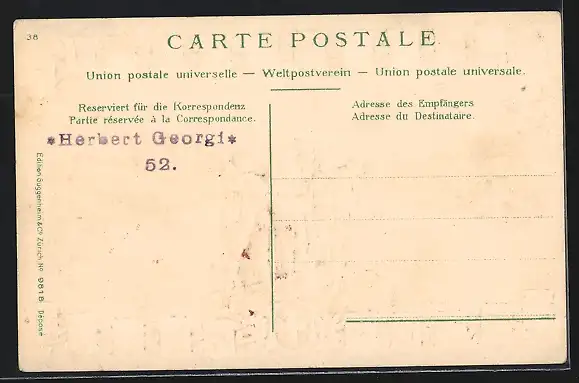 38
CARTE POSTALE
Union postale universelle — Weltpostverein — Union postale universale.
Reserviert für die Korrespondenz
Partie réservée à la Correspondance.
Adresse des Empfängers
Adresse du Destinataire.
*Herbert Georgi*
52.
Edition Guggenheim & Co Zürich No 9818 Déposé